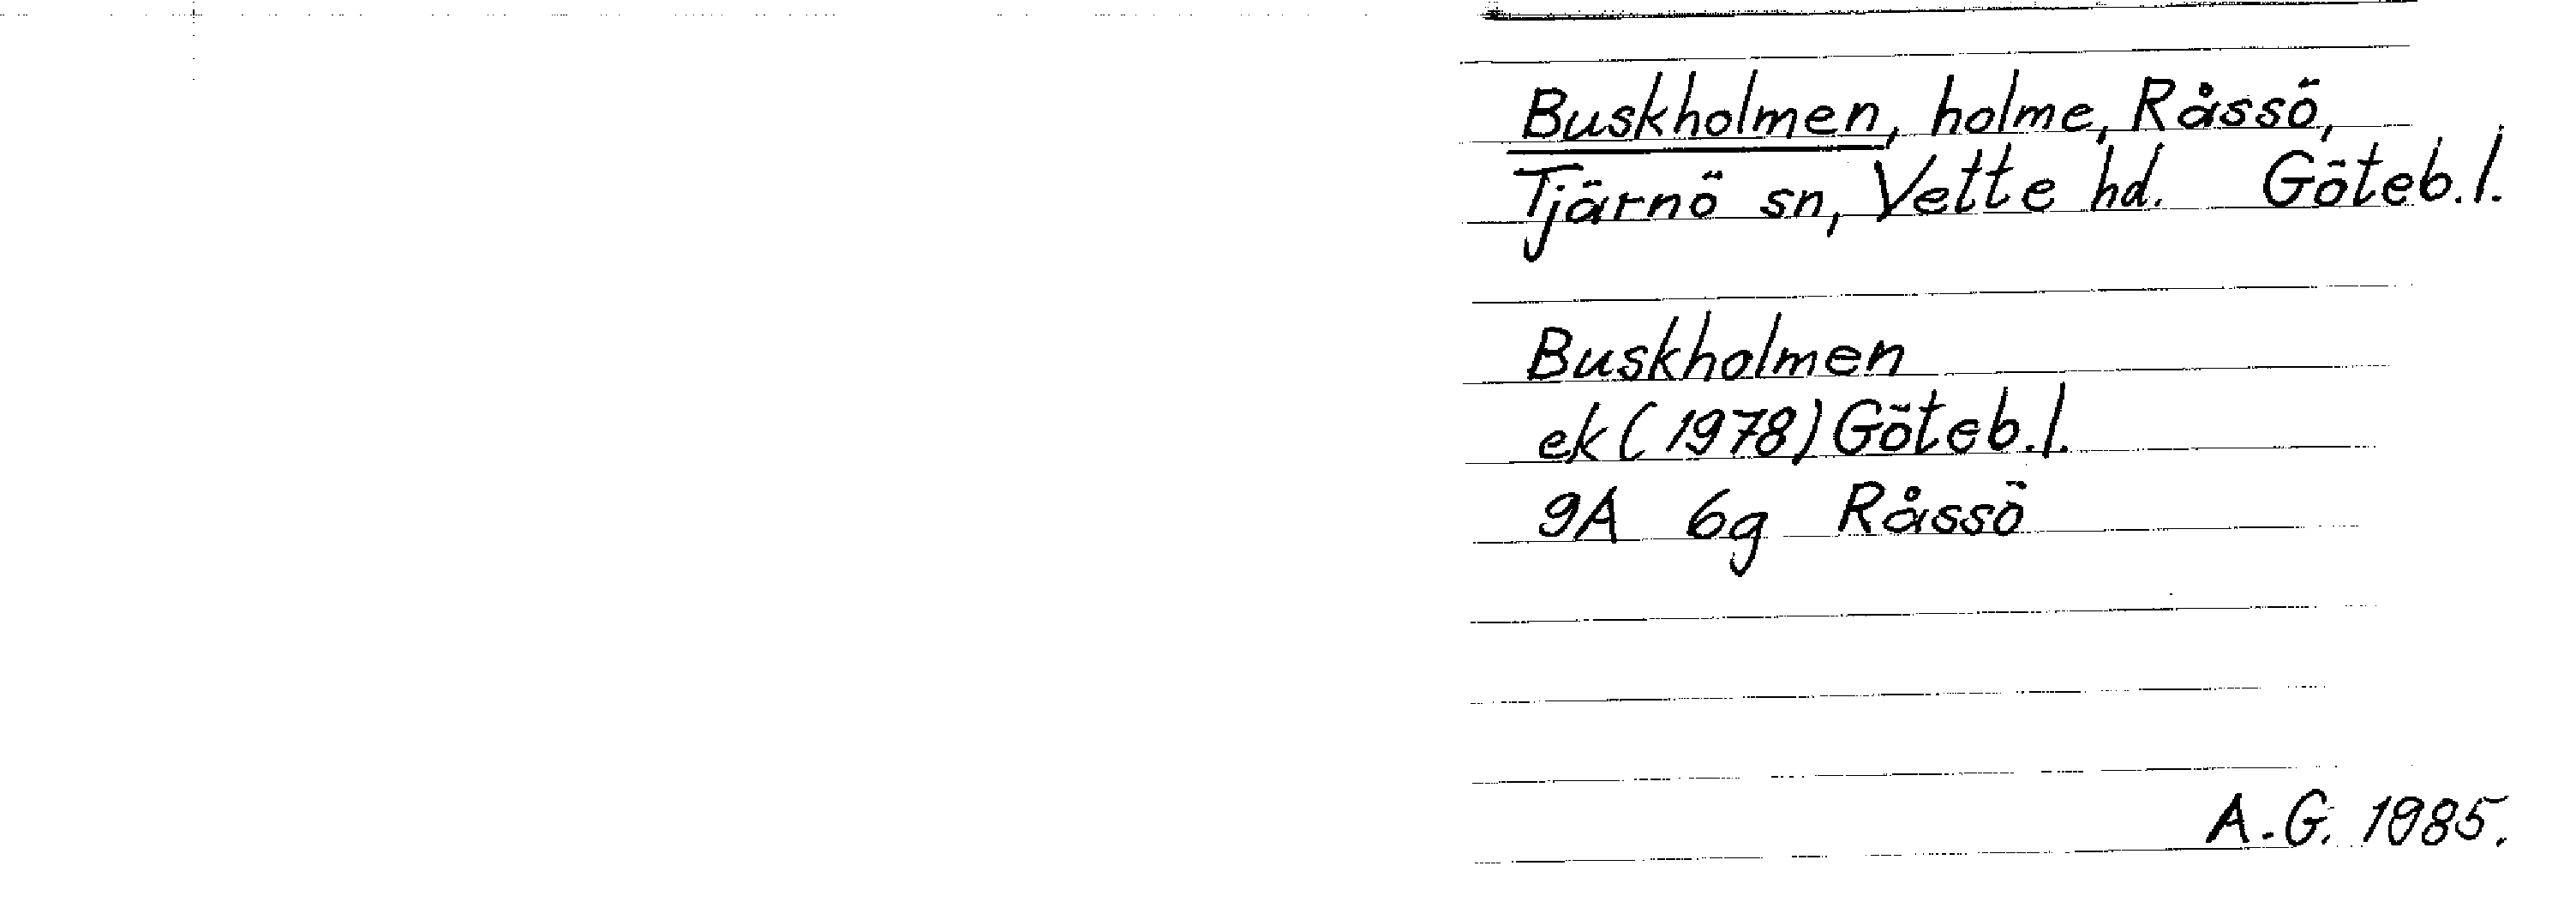 Buskholmen, holme, Råssö,
Tjärnö sn, Vette hd. Göteb. l.
Buskholmen
ek (1978) Göteb. l.
9A 6g Råssö
A.G. 1985.